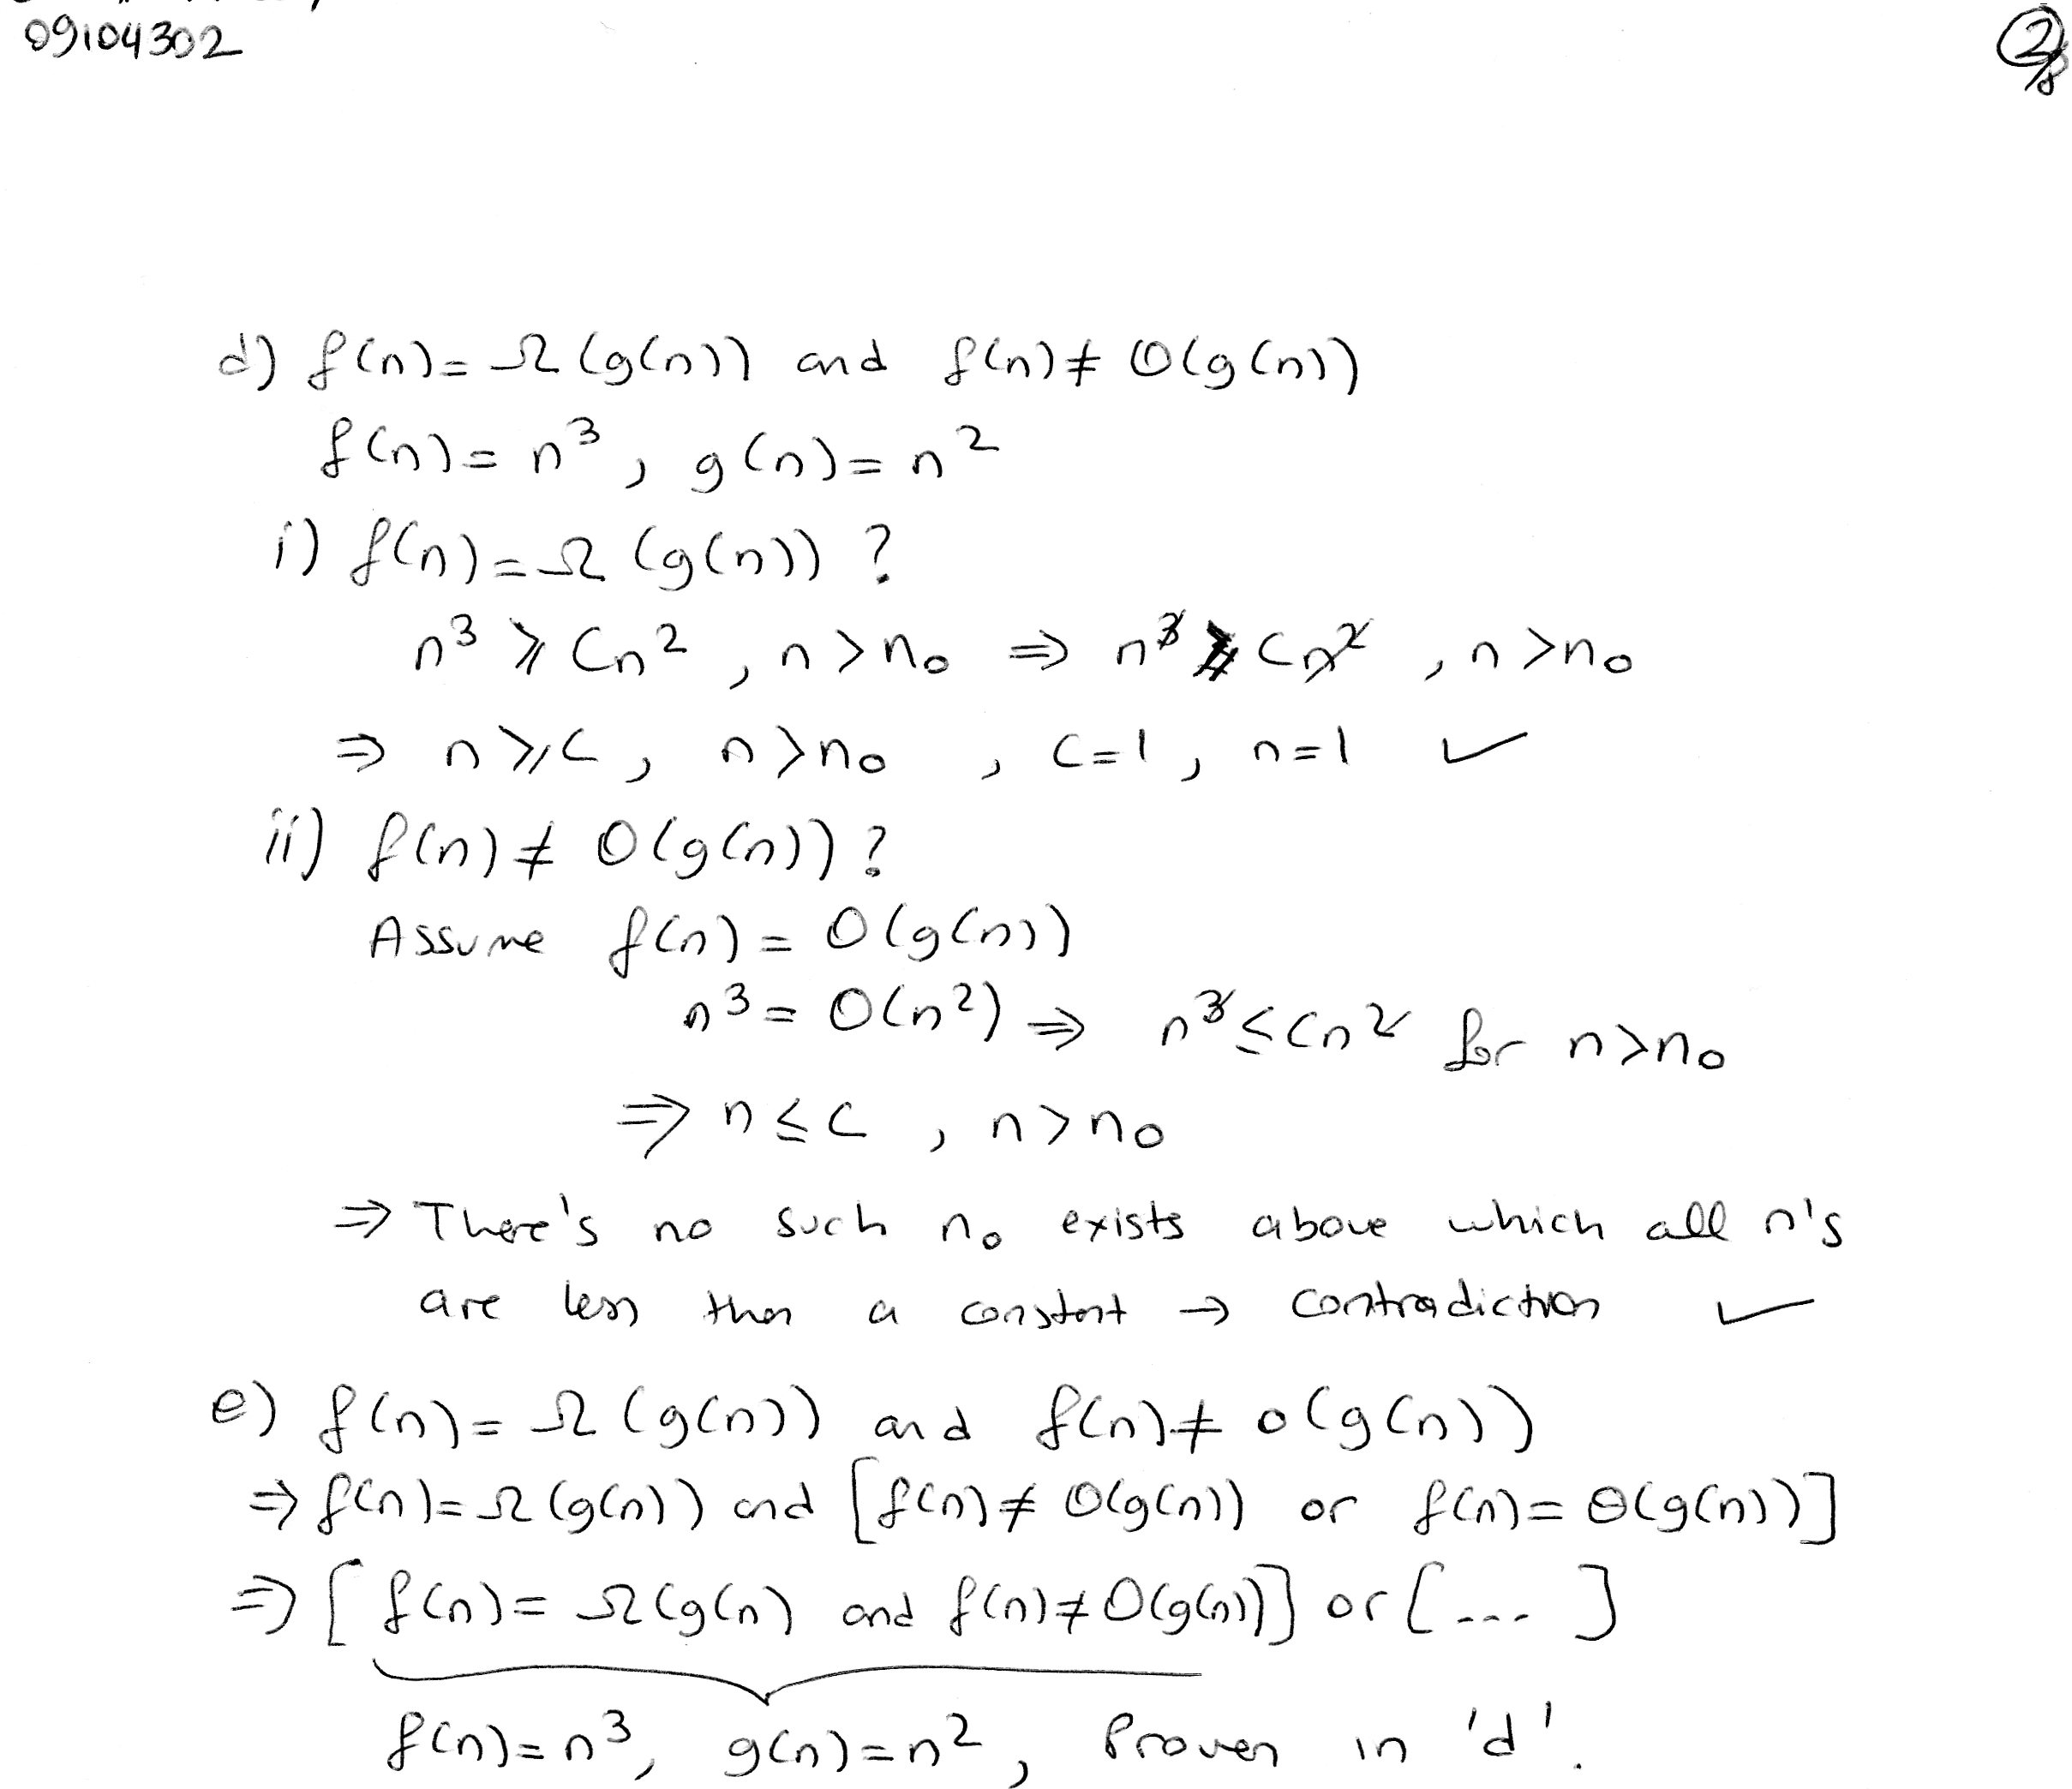 09104302
2/8
d) f(n) = Ω(g(n)) and f(n) ≠ O(g(n))
f(n) = n³, g(n) = n²
i) f(n) = Ω(g(n)) ?
n³ ≥ Cn², n > n₀ ⇒ n³ ≥ Cn², n > n₀
⇒ n ≥ C, n > n₀, C=1, n=1 ✓
ii) f(n) ≠ O(g(n)) ?
Assume f(n) = O(g(n))
n³ = O(n²) ⇒ n³ ≤ Cn² for n > n₀
⇒ n ≤ C, n > n₀
⇒ There's no such n₀ exists above which all n's
are less than a constant → contradiction ✓
e) f(n) = Ω(g(n)) and f(n) ≠ o(g(n))
⇒ f(n) = Ω(g(n)) and [f(n) ≠ O(g(n)) or f(n) = Θ(g(n))]
⇒ [f(n) = Ω(g(n) and f(n) ≠ O(g(n))] or [... ]
f(n) = n³, g(n) = n², Proven in 'd'.